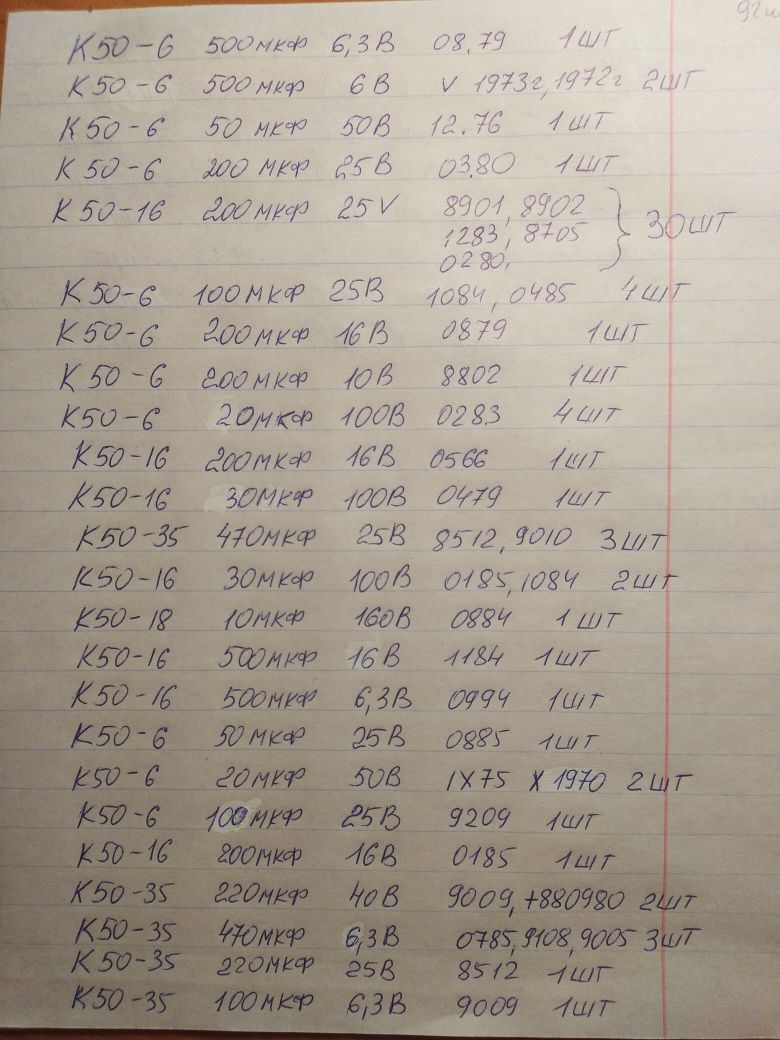 К50-6 500мкф 6,3В 08.79 1шт
К50-6 500мкф 6В V 1973г, 1972г 2шт
К50-6 50мкф 50В 12.76 1шт
К50-6 200мкф 25В 03.80 1шт
К50-16 200мкф 25V 8901, 8902
1283, 8705 } 30шт
0280,
К50-6 100мкф 25В 1084, 0485 4шт
К50-6 200мкф 16В 0879 1шт
К50-6 200мкф 10В 8802 1шт
К50-6 20мкф 100В 0283 4шт
К50-16 200мкф 16В 0566 1шт
К50-16 30мкф 100В 0479 1шт
К50-35 470мкф 25В 8512, 9010 3шт
К50-16 30мкф 100В 0185, 1084 2шт
К50-18 10мкф 160В 0884 1шт
К50-16 500мкф 16В 1184 1шт
К50-16 500мкф 6,3В 0994 1шт
К50-6 50мкф 25В 0885 1шт
К50-6 20мкф 50В IX75 X 1970 2шт
К50-6 100мкф 25В 9209 1шт
К50-16 200мкф 16В 0185 1шт
К50-35 220мкф 40В 9009, +880980 2шт
К50-35 470мкф 6,3В 0785, 9108, 9005 3шт
К50-35 220мкф 25В 8512 1шт
К50-35 100мкф 6,3В 9009 1шт